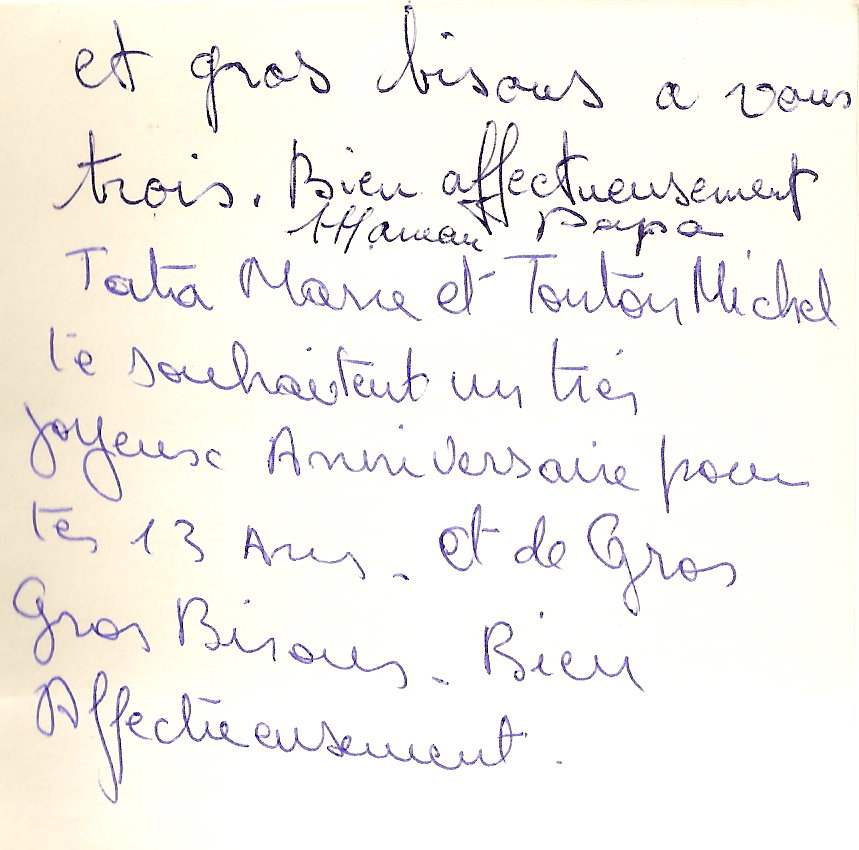 et gros bisous a vous
trois. Bien affectueusement
Maman Papa
Tata Marie et Tonton Michel
te souhaitent un très
joyeux Anniversaire pour
tes 13 Ans. et de Gros
Gros Bisous. Bien
Affectueusement.